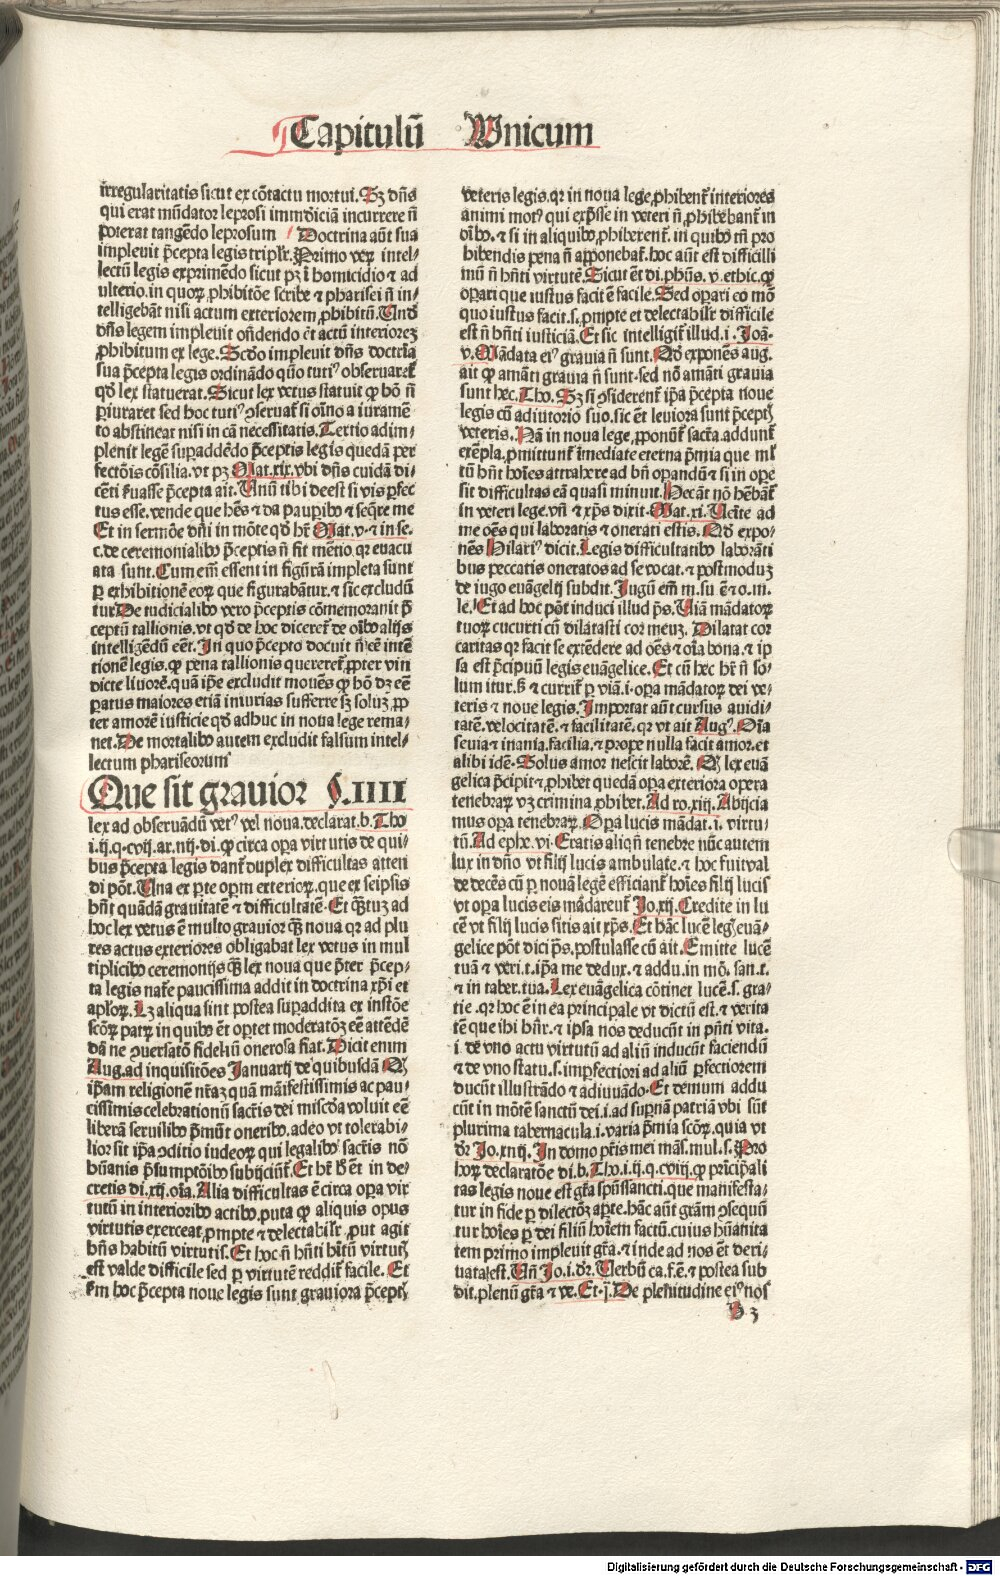 Capitulū Vnicum
irregularitatis sicut ex cōtactu mortui. Sꝫ dn̄s
qui erat mūdator leprosi immūdiciā incurrere n̄
poterat tangēdo leprosum Doctrina aūt sua
impleuit p̄cepta legis triplr̄. Primo veꝝ intel⸗
lectū legis exprimēdo sicut pꝫ ī homicidio ⁊ ad
ulterio. in quoꝝ ꝓhibitōe scribe ⁊ pharisei n̄ in⸗
telligebāt nisi actum exteriorem ꝓhibitū. Vnd̄
dn̄s legem impleuit on̄dendo ēt actū interioreꝫ
ꝓhibitum ex lege. Scd̄o impleuit dn̄s doctr̄ia
sua p̄cepta legis ordinādo quō tutiꝰ obseruaret̄
qd̄ lex statuerat. Sicut lex vetus statuit ꝙ hō n̄
ꝑiuraret sed hoc tutiꝰ ꝯseruat̄ si oīno a iuramē⸗
to abstineat nisi in cā necessitatis. Tertio adim⸗
pleuit legē suꝑaddēdo p̄ceptis legis quedā ꝑer
fectōis cōsilia. vt pꝫ Mat. xix. vbi dn̄s cuidā di⸗
cēti ẜuasse p̄cepta ait. Vnū tibi deest si vis ꝑfec
tus esse. vende que hēs ⁊ da pauꝑibꝰ ⁊ seq̄re me
Et in sermōe dn̄i in mōte qd̄ hr̄ Mat. v. ⁊ in se.
c. de ceremonialibꝰ p̄ceptis n̄ fit mētio qr euacu
ata sunt. Cum em̄ essent in figurā impleta sunt
ꝑ exhibitionē eoꝝ que figurabātur. ⁊ sic excludū
tur De iudicialibꝰ vero p̄ceptis cōmemorauit p̄
ceptū tallionis. vt qd̄ de hoc diceret̄ de oībꝰ alijs
intelligēdū eēt. In quo p̄cepto docuit n̄ eē intē
tionē legis. ꝙ pena tallionis quereret̄ ꝓpter vin
dicte liuorē. quā ip̄e excludit mouēs ꝙ hō dꝫ eē
ꝑatus maiores etiā iniurias sufferre sꝫ soluꝫ ꝓp
ter amorē iusticie qd̄ adhuc in noua lege rema⸗
net. De mortalibꝰ autem excludit falsum intel⸗
lectum phariseorum
Que sit grauior §. IIII
lex ad obseruādū vetꝰ vel noua. declarat. b. Tho
i. ij. q. cvij. ar. iiij. di. ꝙ circa oꝑa virtutis de qui⸗
bus p̄cepta legis dant̄ duplex difficultas atten
di pōt. Vna ex ꝑte oꝑm exterioꝝ. que ex seipsis
hn̄t quādā grauitatē ⁊ difficultatē. Et qꝫtuꝫ ad
hoc lex vetus ē multo grauior qꝫ noua qr ad plu
res actus exteriores obligabat lex vetus in mul
tiplicibꝰ ceremonijs qꝫ lex noua que p̄ter p̄cep⸗
ta legis nat̄e paucissima addit in doctrina xp̄i et
apl̄oꝝ. Lꝫ aliqua sint postea suꝑaddita ex instōe
scōꝝ patꝝ in quibꝰ ēt oꝑtet moderatōꝫ eē attēdē
dā ne ꝯuersatō fideliū onerosa fiat. Dicit enim
Aug. ad inquisitōes Januarij de quibusdā Qꝫ
ip̄am religionē nr̄aꝫ quā māifestissimis ac pau⸗
cissimis celebrationū sacr̄is dei misc̄dia voluit eē
liberā seruilibꝰ p̄mūt oneribꝰ. adeo vt tolerabi⸗
lior sit ip̄a ꝯditio iudeoꝝ qui legalibꝰ sacr̄is nō
hūanis p̄sumptōibꝰ subijciūt̄. Et hr̄ ꝟ ēt in de⸗
cretis di. xij. oīa. Alia difficultas ē circa oꝑa vir
tutū in interioribꝰ actibꝰ. puta ꝙ aliquis opus
virtutis exerceat ꝓmpte ⁊ delectabilr̄. put agit
hn̄s habitū virtutis. Et hoc n̄ hn̄ti hītū virtuꝫ
est valde difficile sed ꝑ virtutē reddit̄ facile. Et
ẜm hoc p̄cepta noue legis sunt grauiora p̄ceptꝫ
veteris legis. qr in noua lege ꝓhibent̄ interiores
animi motꝰ qui exp̄sse in veteri n̄ ꝓhibebant̄ in
oībꝰ. ⁊ si in aliquibꝰ ꝓhiberent̄. in quibꝰ tn̄ pro
hibendis pena n̄ apponebat̄. hoc aūt est difficilli
mū n̄ hn̄ti virtutē. Sicut ēt di. phūs. v. ethic. ꝙ
oꝑari que iustus facit ē facile. Sed oꝑari eo mō
quo iustus facit. s. ꝓmpte et delectabilr̄ difficile
est n̄ hn̄ti iusticiā. Et sic intelligit̄ illud. i. Joā⸗
v. Mādata eiꝰ grauia n̄ sunt. Qd̄ exponēs aug.
ait ꝙ amāti grauia n̄ sunt. sed nō amāti grauia
sunt hec. Tho. Sꝫ si ꝯsiderent̄ ip̄a p̄cepta noue
legis cū adiutorio suo. sic ēt leuiora sunt p̄ceptꝫ
veteris. Nā in noua lege ꝓponūt̄ sacr̄a. addunt̄
exēpla. ꝓmittunt̄ īmediate eterna p̄mia que ml̄
tū hn̄t hoīes attrahere ad bn̄ oꝑandū ⁊ si in oꝑe
sit difficultas eā quasi minuūt. Hec aūt nō hēbāt̄
in veteri lege. vn̄ ⁊ xp̄s dixit. Mat. xi. Uēite ad
me oēs qui laboratis ⁊ onerati estis. Qd̄ expo⸗
nēs Hilariꝰ dicit. Legis difficultatibꝰ laborāti
bus peccatis oneratos ad se vocat. ⁊ postmoduꝫ
de iugo euāgelij subdit. Jugū em̄ m. su ē ⁊ o. m.
le. Et ad hoc pōt induci illud ps. Uiā mādatoꝝ
tuoꝝ cucurri cū dilatasti cor meuꝫ. Dilatat cor
caritas qr facit se extēdere ad oēs ⁊ oīa bona. ⁊ ip
sa est p̄cipuū legis euāgelice. Et cū hec hr̄ n̄ so⸗
lum itur. ꝟ ⁊ currit̄ ꝑ viā. i. oꝑa mādatoꝝ dei ve⸗
teris ⁊ noue legis. Importat aūt cursus auidi⸗
tatē. velocitatē. ⁊ facilitatē. qr vt ait Augꝰ. Oīa
seuia ⁊ inania. facilia. ⁊ prope nulla facit amor. et
alibi idē. Solus amor nescit laborē. Qꝫ lex euā
gelica p̄cipit ⁊ ꝓhibet quedā oꝑa exteriora opera
tenebraꝝ vꝫ crimina ꝓhibet. Ad ro. xiij. Abijcia
mus oꝑa tenebraꝝ. Oꝑa lucis mādat. i. virtu⸗
tū. Ad ephe. vi. Eratis aliqn̄ tenebre nūc autem
lux in dn̄o vt filij lucis ambulate. ⁊ hoc fuit val
de decēs cū ꝑ nouā legē efficiant̄ hoīes filij lucis
vt oꝑa lucis eis mādarent̄ Jo. xij. Credite in lu
cē vt filij lucis sitis ait xp̄s. Et hāc lucē legꝫ euā⸗
gelice pōt dici ps. postulasse cū ait. Emitte lucē
tuā ⁊ veri. t. ip̄a me dedux. ⁊ addu. in mō. san. t.
⁊ in taber. tua. Lex euāgelica cōtinet lucē. s. gra⸗
tie. qr hoc ē in ea principale vt dictū est. ⁊ verita
tē que ibi hr̄. ⁊ ipsa nos deducūt in pn̄ti vita.
i. de vno actu virtutū ad aliū inducūt faciendū
⁊ de vno statu. s. imꝑfectiori ad aliū ꝑfectiorem
ducūt illustrādo ⁊ adiuuādo. Et demum addu
cūt in mōtē sanctū dei. i. ad suꝑnā patriā vbi sūt
plurima tabernacula. i. varia p̄mia scōꝝ. quia vt
dr̄ Jo. xiiij. In domo pr̄is mei mās. mul. s. Pro
hoꝝ declaratōe di. b. Tho. i. ij. q. cviij. ꝙ pr̄icipali
tas legis noue est gr̄a spūssancti. que manifesta⸗
tur in fide ꝑ dilectōꝫ aꝑte. hāc aūt gr̄am ꝯsequū
tur hoīes ꝑ dei filiū hoīem factū. cuius hūanita
tem primo impleuit gr̄a. ⁊ inde ad nos ēt deri⸗
uata est. Vn̄ Jo. i. dr̄. Verbū ca. f. ē. ⁊ postea sub
dit. plenū gr̄a ⁊ ve. Et. j. De plenitudine eiꝰ nos
D 3
Digitalisierung gefördert durch die Deutsche Forschungsgemeinschaft - DFG